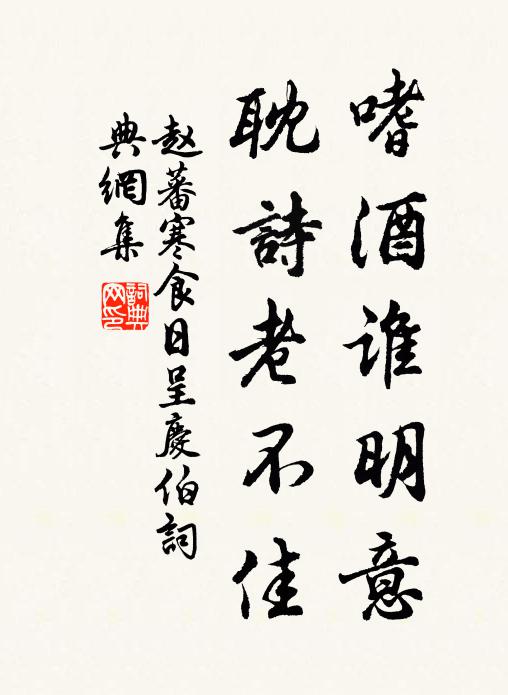 嗜酒谁明意
耽詩老不佳
赵蕃寒食日呈慶伯詞
典網集
詞典网印